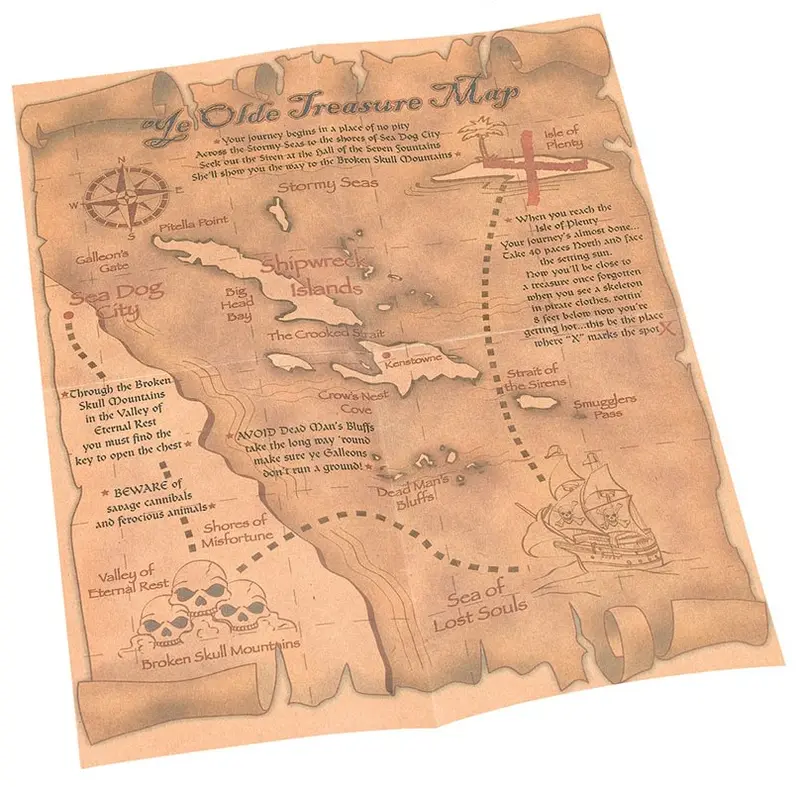 Ye Olde Treasure Map
★Your journey begins in a place of no pity
Across the Stormy Seas to the shores of Sea Dog City—
Seek out the Siren at the Hall of the Seven Fountains
She'll show you the way to the Broken Skull Mountains★
Isle of
Plenty
Stormy Seas
N
W
E
S
Pitella Point
Galleon's
Gate
Sea Dog
City
Big
Head
Bay
Shipwreck
Islands
The Crooked Strait
Kenstowne
Crow's Nest
Cove
★ When you reach the
Isle of Plenty
Your journey's almost done...
Take 40 paces North and face
the setting sun.
Now you'll be close to
a treasure once forgotten
when you see a skeleton
in pirate clothes, rottin'
8 feet below now you're
getting hot...this be the place
where "X" marks the spot X
Strait of
the Sirens
Smugglers
Pass
★Through the Broken
Skull Mountains
in the Valley of
Eternal Rest
you must find the
key to open the chest★
★AVOID Dead Man's Bluffs
take the long way 'round
make sure ye Galleons
don't run a ground!★
Dead Man's
Bluffs
★ BEWARE of
savage cannibals
and ferocious animals★
Shores of
Misfortune
Valley of
Eternal Rest
Broken Skull Mountains
Sea of
Lost Souls